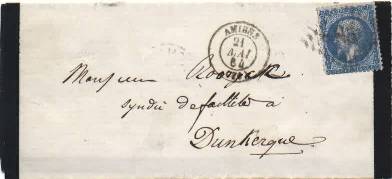 AMIENS
21
MAI
64
Monsieur
syndic de faillite à
Dunkerque